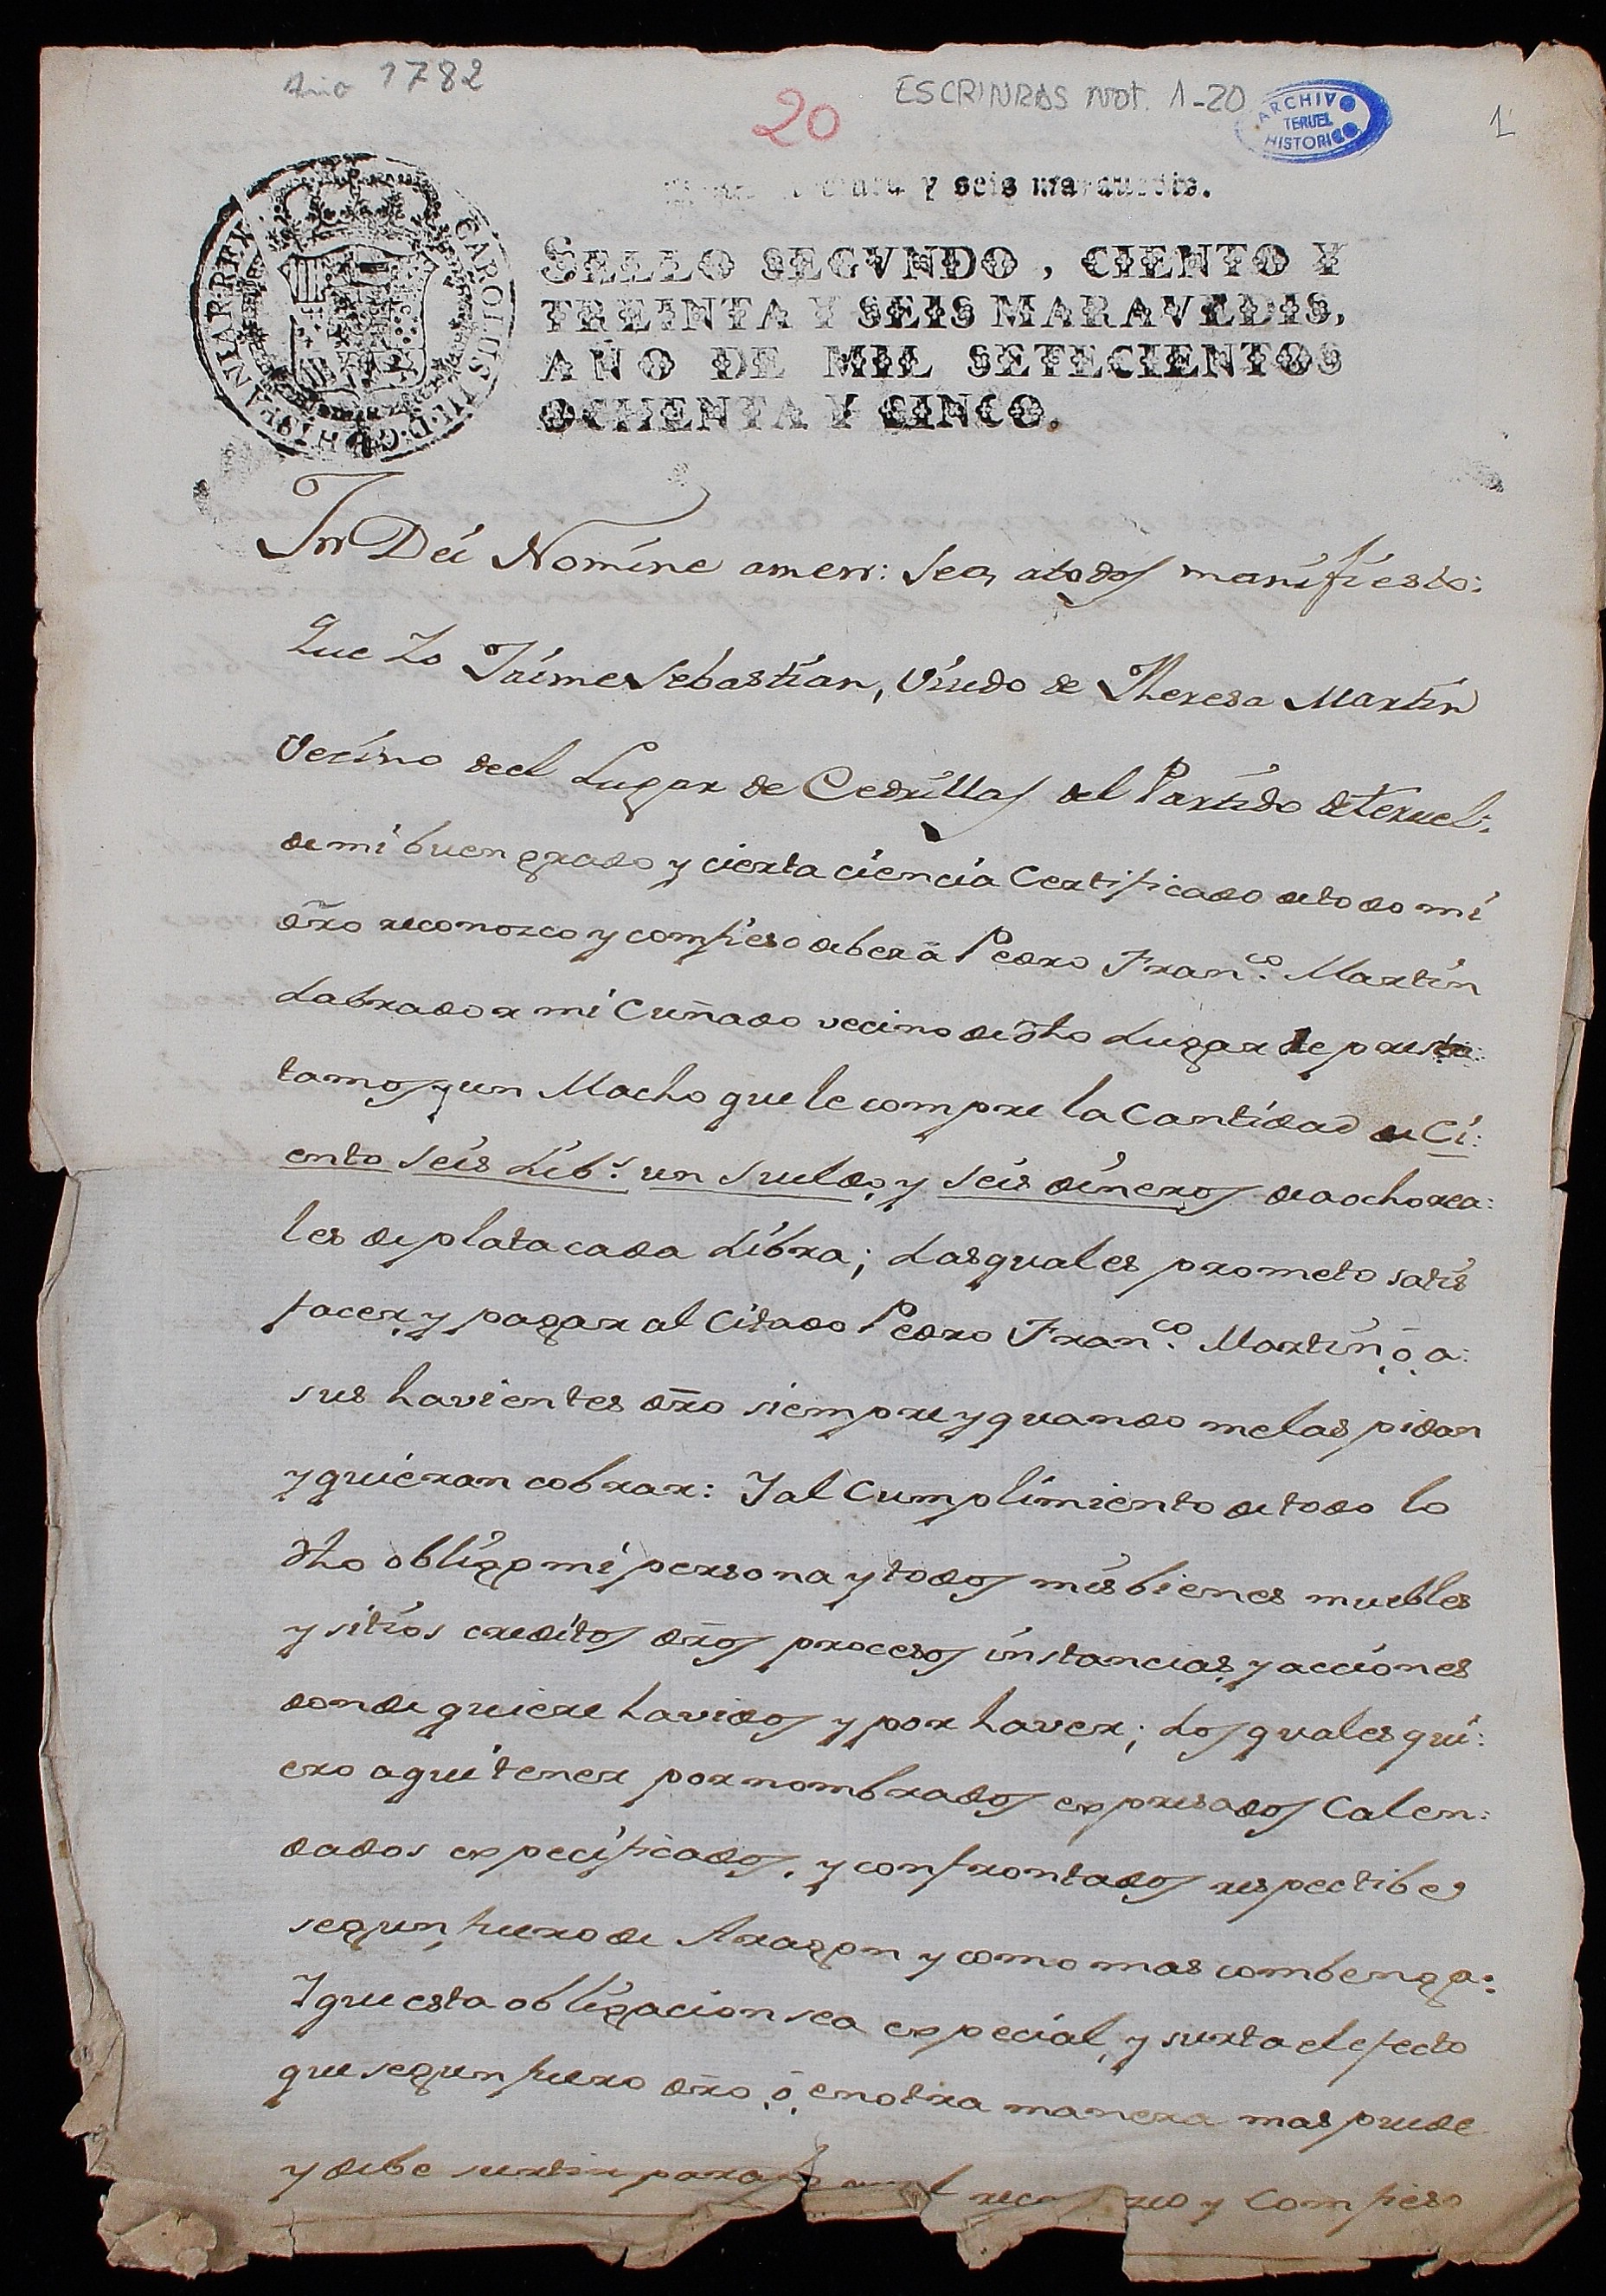 Año 1782
20
ESCRINRAS Not. 1-20
ARCHIVO
TERUEL
HISTORICO
1
CAROLUS III D G HISPANIAR REX
y seis maravedis.
SELLO SEGVNDO, CIENTO Y
TREINTA Y SEIS MARAVEDIS,
AÑO DE MIL SETECIENTOS
OCHENTA Y CINCO.
In Dei Nomine amen: Sea atodos manifiesto:
Que Yo Jaime Sebastian, Viudo de Theresa Martin
Vecino deel Lugar de Cedrillas del Partido deteruel:
de mi buen grado y cierta ciencia Certificado detodo mi
dro reconozco y confieso deber à Pedro Franco. Martin
Labrador mi Cuñado vecino de dho Lugar de pres:
tamos, y un Macho que le compre la Cantidad de Ci:
ento seis Libs. un sueldo, y seis dineros de a ocho rea:
les de plata cada Libra; Las quales prometo satis
facer, y pagar al Citado Pedro Franco. Martin, ò a:
sus havientes dro siempre y quando melas pidan
y quieran cobrar: Y al Cumplimiento detodo lo
dho obligo mi persona y todos mis bienes muebles
y sitios creditos dros procesos instancias, y acciones
donde quiere havidos y por haver; Los quales qui:
ero aqui tener por nombrados expresados Calen:
dados expecificados, y confrontados respectibe
segun fuero de Aragon y como mas combenga:
Y que esta obligacion sea expecial, y surta el efecto
que segun fuero dro, ò en otra manera mas puede
y debe surtir para y Confieso